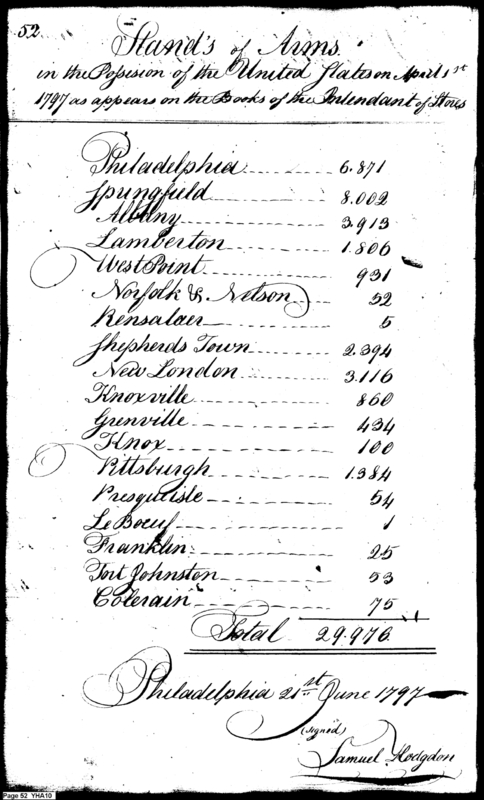 52
Stand's of Arms.
in the Possision of the United States on April 1st
1797 as appears on the Books of the Intendant of Stores
Philadelphia 6.871
Springfield 8.002
Albany 3.913
Lamberton 1.806
West Point 931
Norfolk & Nelson 52
Rensalaer 5
Shepherds Town 2.394
New London 3.116
Knoxville 860
Grenville 434
Knox 100
Pittsburgh 1.384
Presqueisle 54
Le Boeuf 1
Franklin 25
Fort Johnston 53
Colerain 75
Total 29.976
Philadelphia 21st June 1797
(signed)
Samuel Hodgdon
Page 52 YHA10